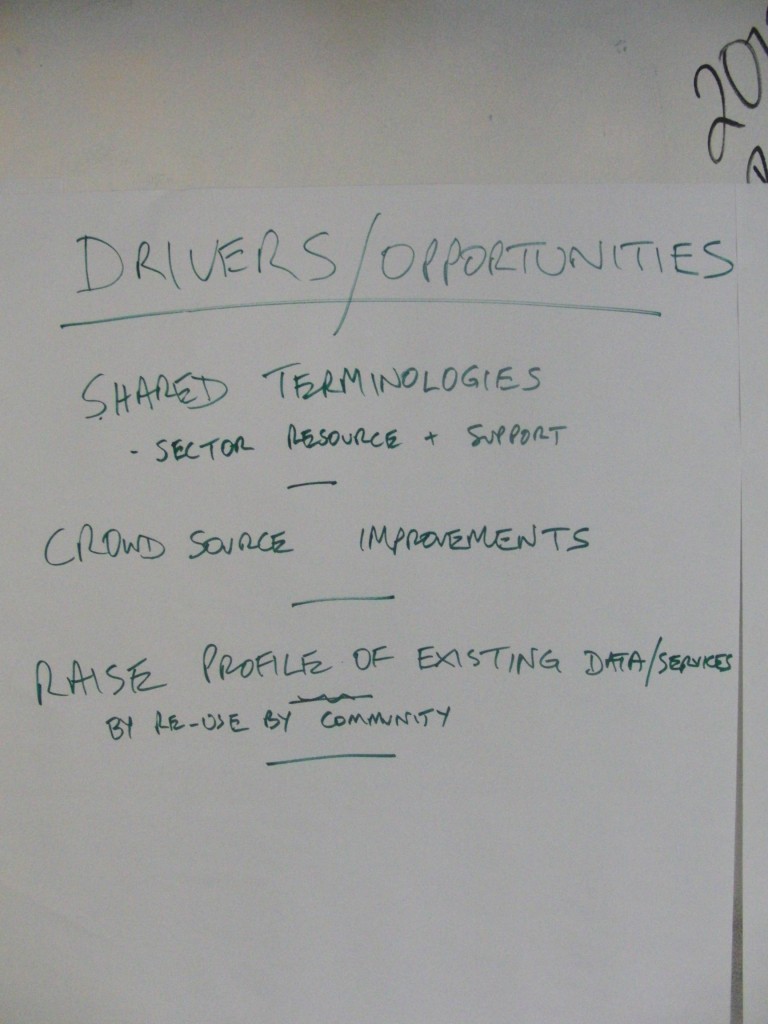 DRIVERS/OPPORTUNITIES
SHARED TERMINOLOGIES
- SECTOR RESOURCE + SUPPORT
CROWD SOURCE IMPROVEMENTS
RAISE PROFILE OF EXISTING DATA/SERVICES
BY RE-USE BY COMMUNITY